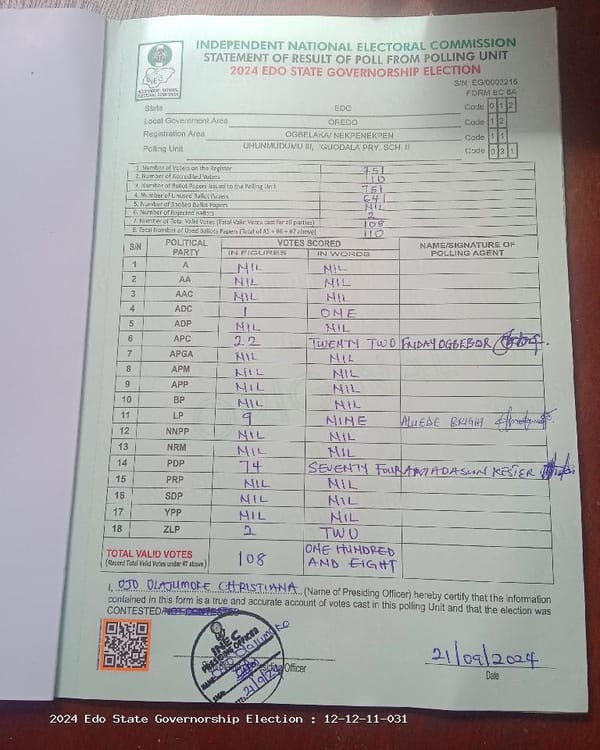 INDEPENDENT NATIONAL ELECTORAL COMMISSION
STATEMENT OF RESULT OF POLL FROM POLLING UNIT
2024 EDO STATE GOVERNORSHIP ELECTION
S/N EG/0003216
FORM EC 8A
State EDO Code 0 1 2
Local Government Area OREDO Code 1 2
Registration Area OGBELAKA/ NEKPENEKPEN Code 1 1
Polling Unit UHUNMUDUMU III, IGUODALA PRY. SCH II Code 0 3 1
1. Number of Voters on the Register 751
2. Number of Accredited Voters 110
3. Number of Ballot Papers Issued to the Polling Unit 751
4. Number of Unused Ballot Papers 641
5. Number of Spoiled Ballot Papers NIL
6. Number of Rejected Ballots 2
7. Number of Total Valid Votes (Total Valid Votes cast for all parties) 108
8. Total Number of Used Ballots Papers (Total of #5 + #6 + #7 above) 110
S/N POLITICAL PARTY VOTES SCORED NAME/SIGNATURE OF POLLING AGENT
IN FIGURES IN WORDS
1 A NIL NIL
2 AA NIL NIL
3 AAC NIL NIL
4 ADC 1 ONE
5 ADP NIL NIL
6 APC 22 TWENTY TWO FRIDAY OGBEBOR
7 APGA NIL NIL
8 APM NIL NIL
9 APP NIL NIL
10 BP NIL NIL
11 LP 9 NINE ALUEDE BRIGHT
12 NNPP NIL NIL
13 NRM NIL NIL
14 PDP 74 SEVENTY FOUR AMADASUN KESTER
15 PRP NIL NIL
16 SDP NIL NIL
17 YPP NIL NIL
18 ZLP 2 TWO
TOTAL VALID VOTES 108 ONE HUNDRED AND EIGHT
(Record Total Valid Votes under #7 above)
I, OJO OLAJUMOKE CHRISTIANA (Name of Presiding Officer) hereby certify that the information
contained in this form is a true and accurate account of votes cast in this polling Unit and that the election was
CONTESTED/NOT CONTESTED
INEC
PRESIDING OFFICER
21/09/2024
Officer
Date
2024 Edo State Governorship Election : 12-12-11-031